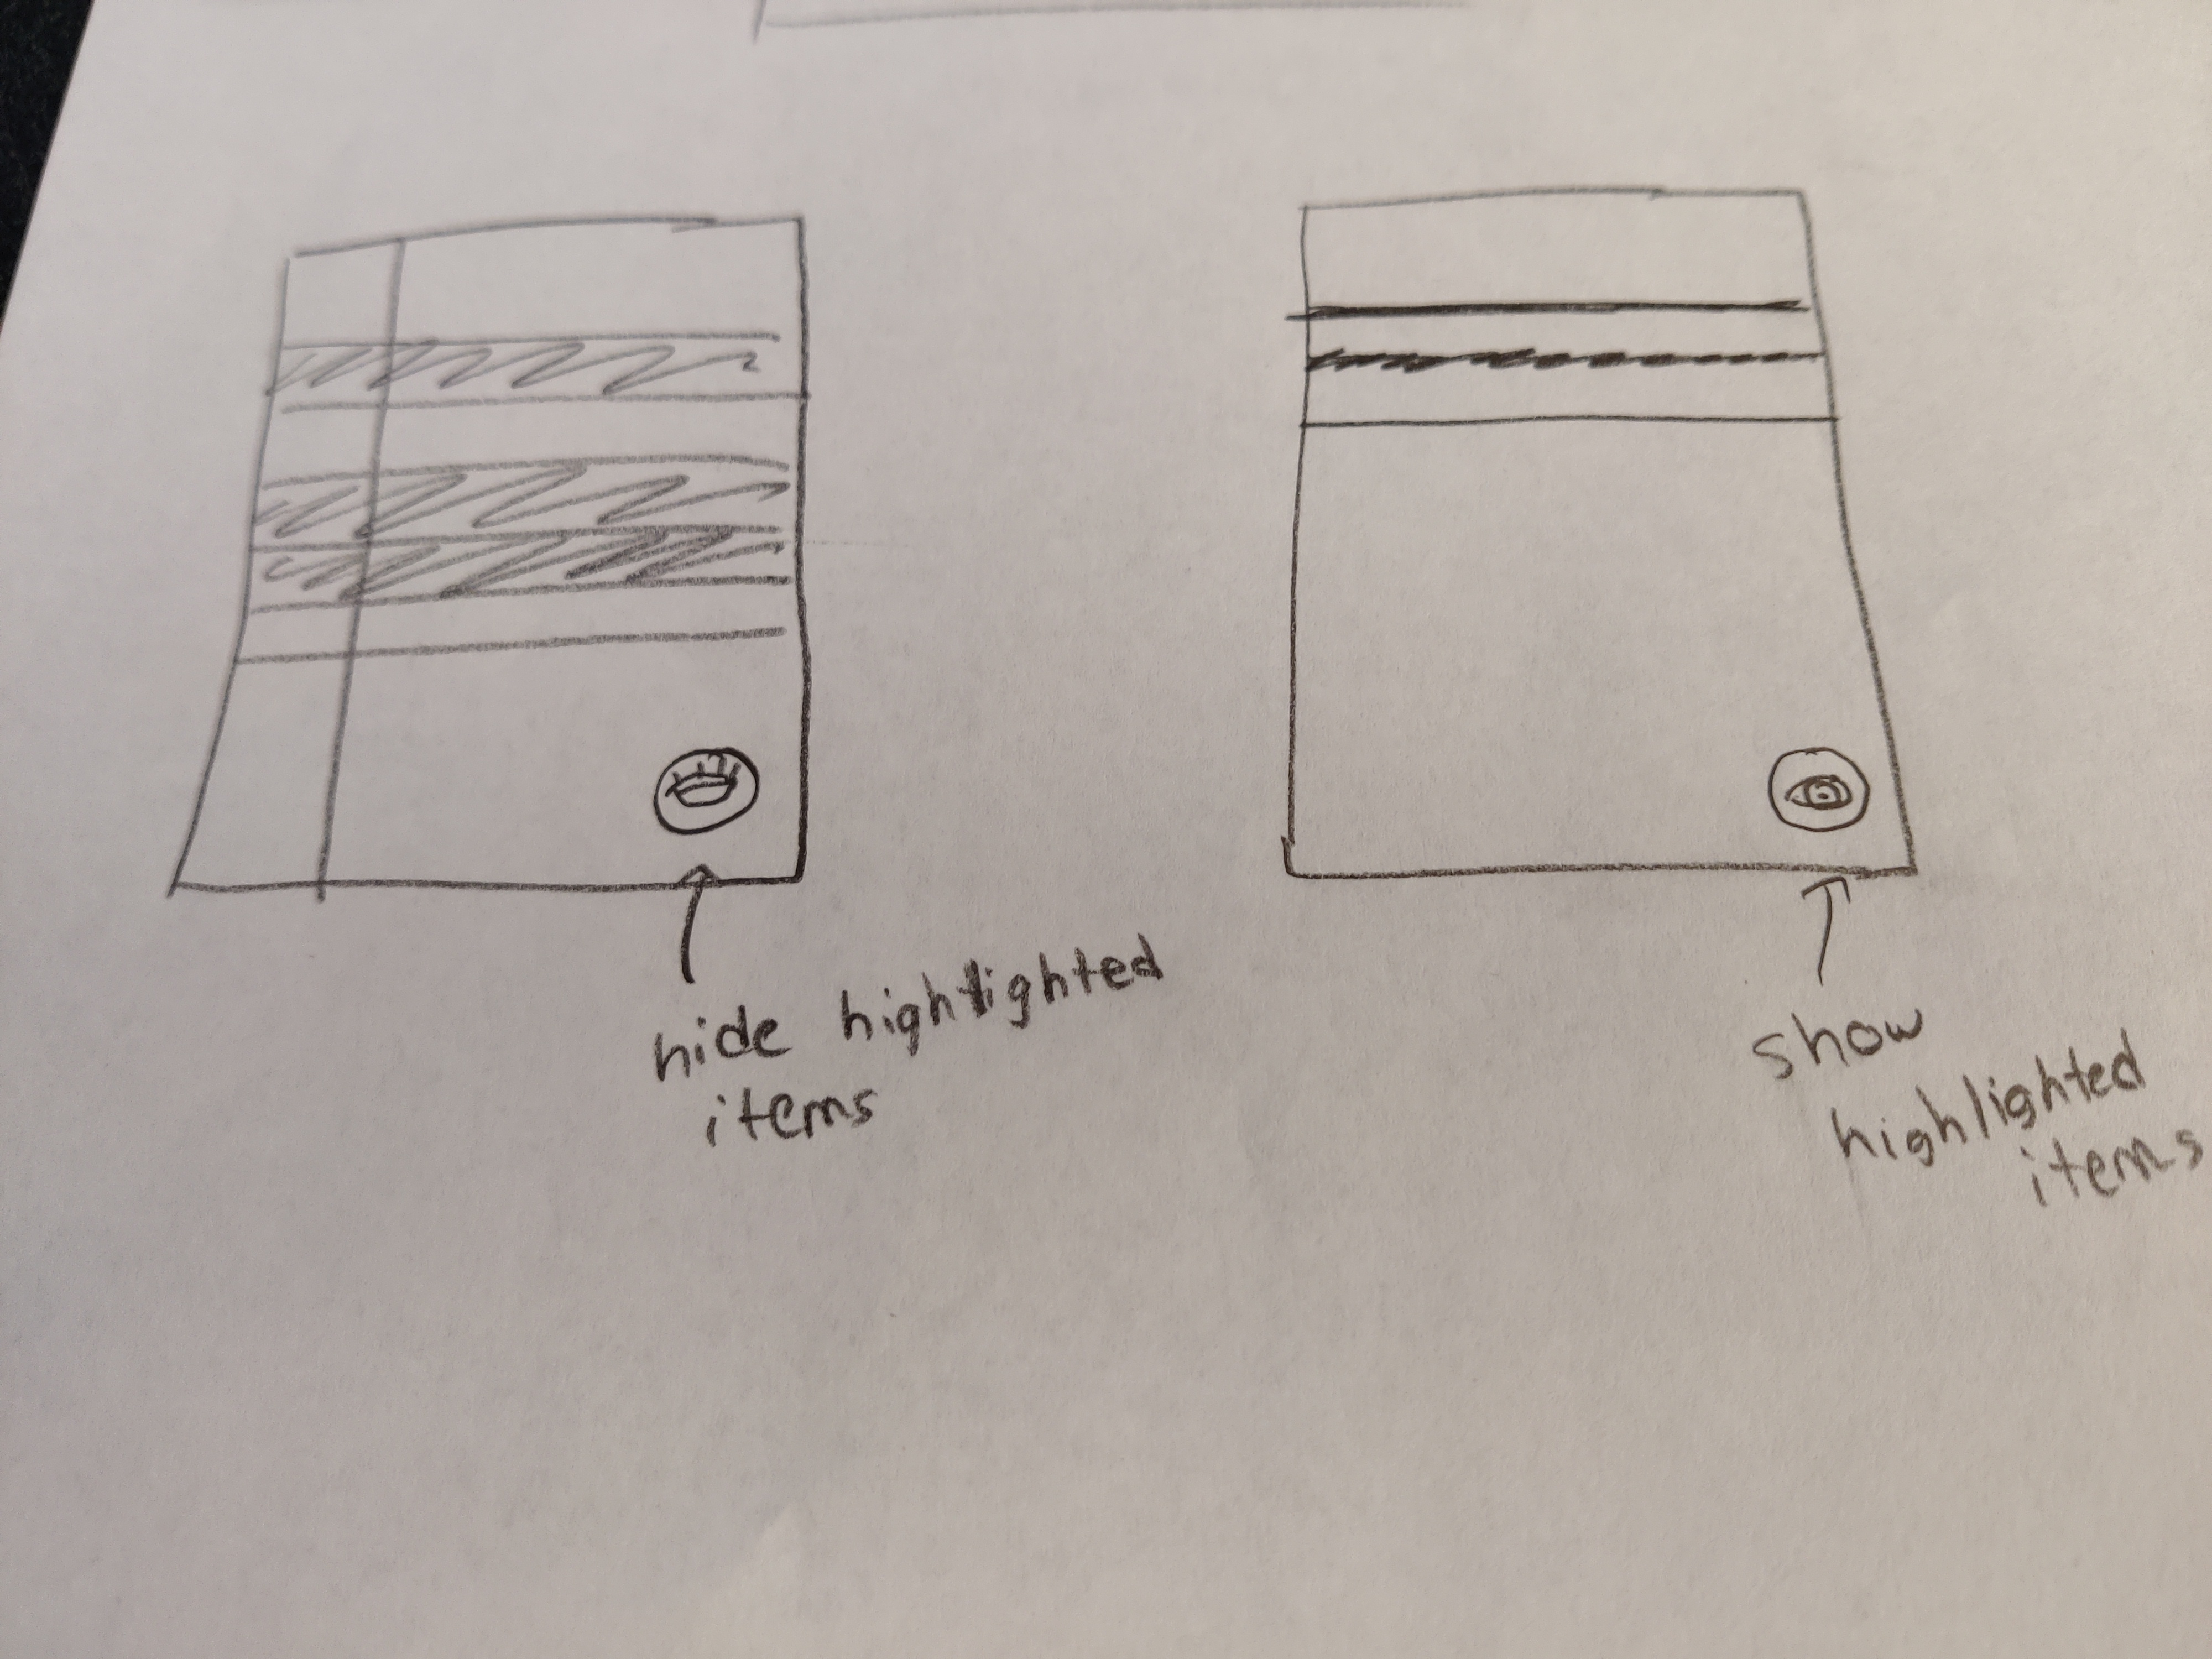 hide highlighted
items
show
highlighted
items